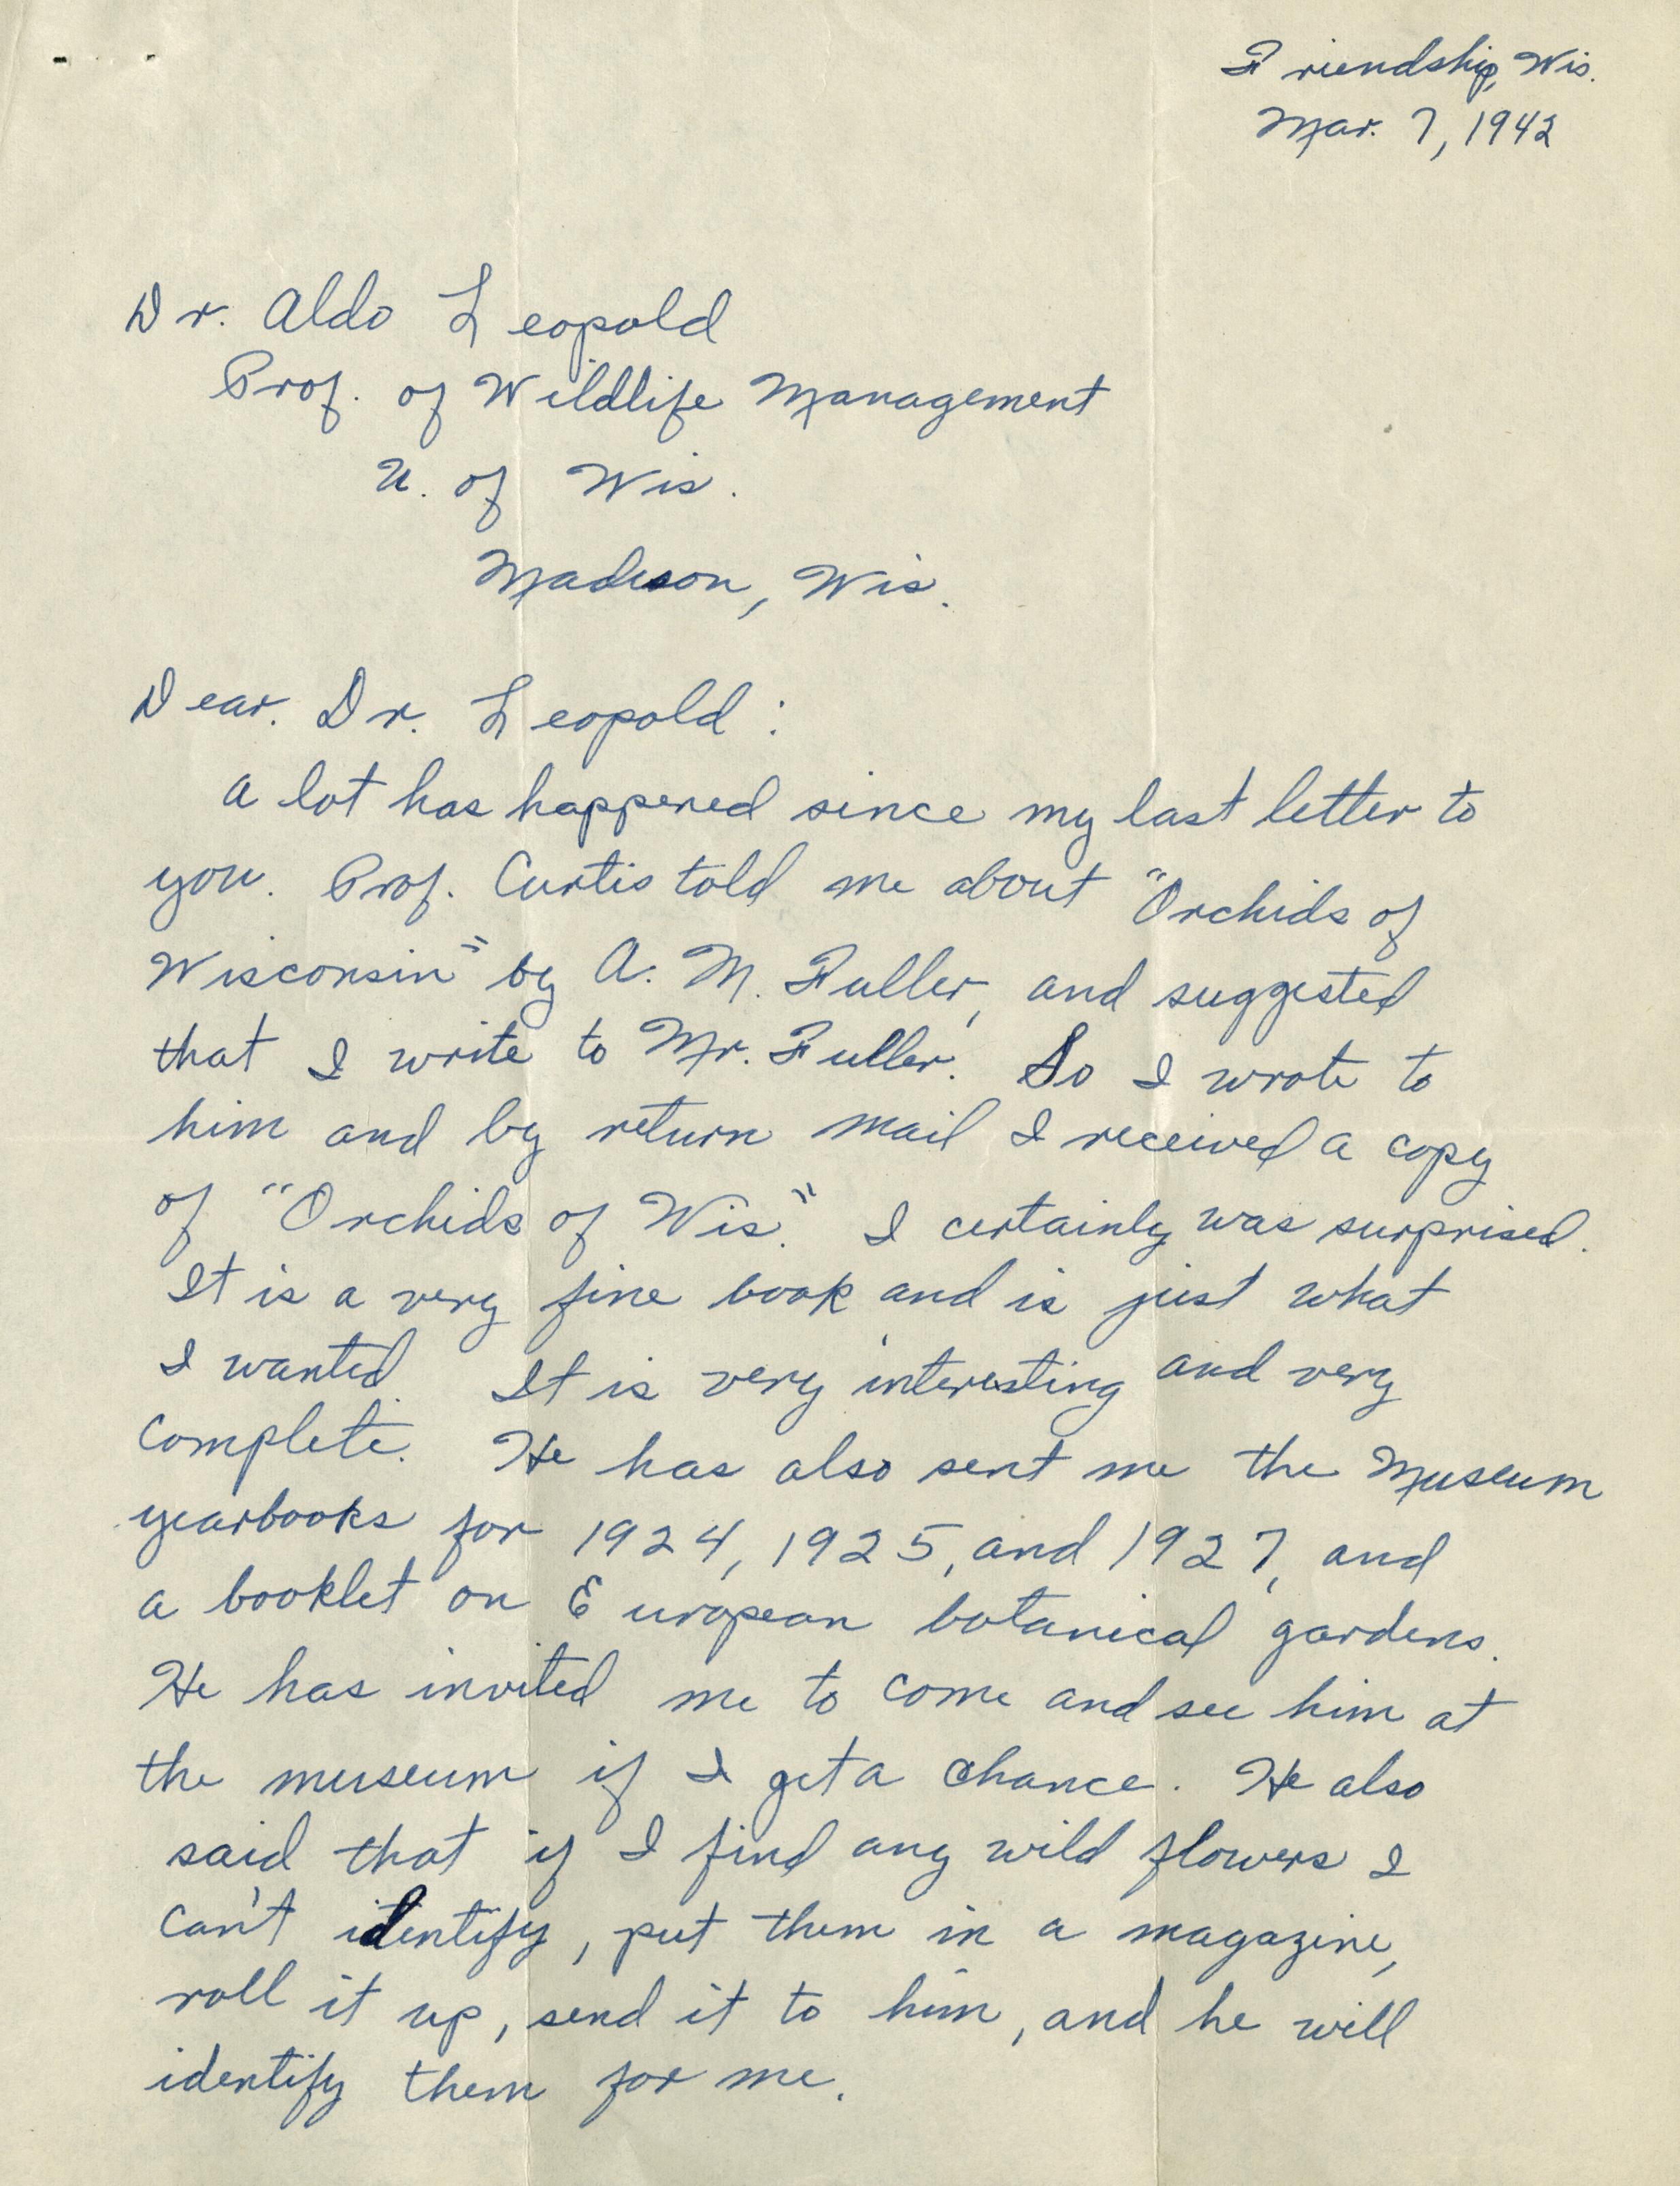 Friendship, Wis.
Mar. 7, 1942
Dr. Aldo Leopold
Prof. of Wildlife Management
U. of Wis.
Madison, Wis.
Dear. Dr. Leopold:
A lot has happened since my last letter to
you. Prof. Curtis told me about "Orchids of
Wisconsin" by A. M. Fuller, and suggested
that I write to Mr. Fuller. So I wrote to
him and by return mail I received a copy
of "Orchids of Wis." I certainly was surprised.
It is a very fine book and is just what
I wanted. It is very interesting and very
complete. He has also sent me the Museum
yearbooks for 1924, 1925, and 1927, and
a booklet on European botanical gardens.
He has invited me to come and see him at
the museum if I get a chance. He also
said that if I find any wild flowers I
can't identify, put them in a magazine,
roll it up, send it to him, and he will
identify them for me.